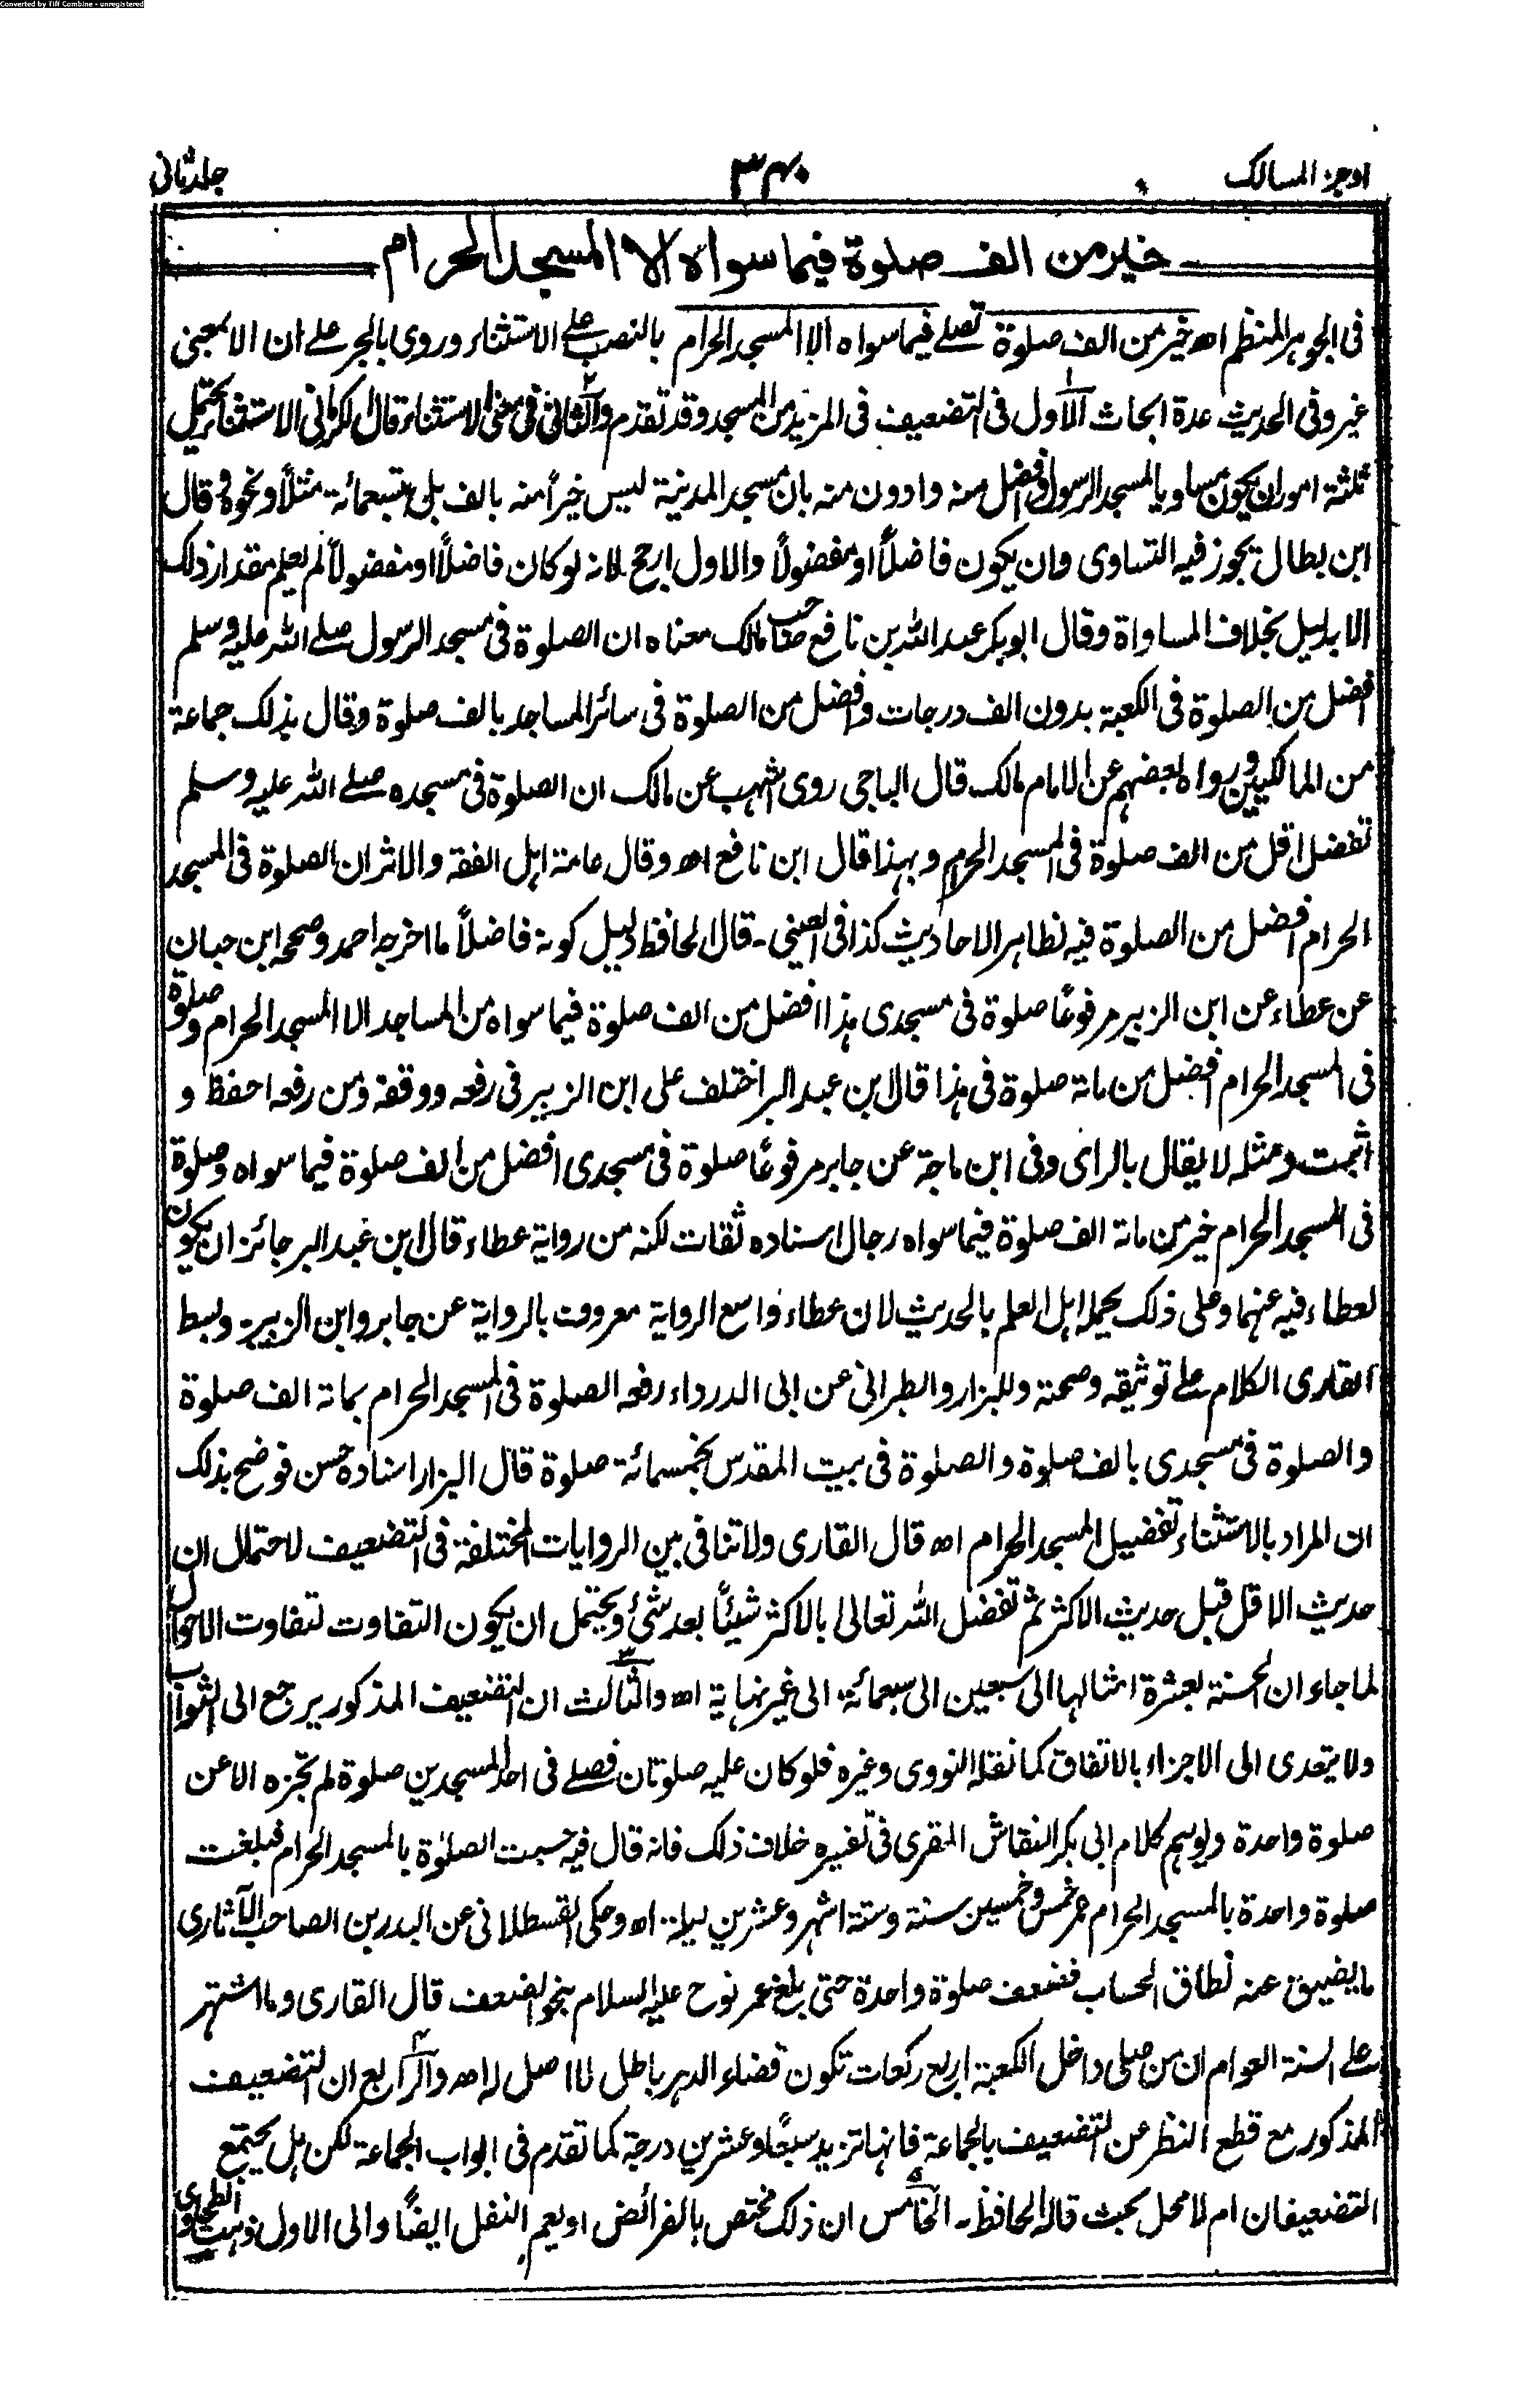 Converted by Tiff Combine - unregistered
اوجز المسالك
٣٤٠
جلد ثانی
خير من الف صلوة فيما سواه الا المسجد الحرام
فى الجوهر المنظم اھ خير من الف صلوة تصلے فيما سواه الا المسجد الحرام بالنصب علے الاستثناء وروى بالجر علے ان الا بمعنى
غير وفى الحديث عدة ابحاث الاول فى التضعيف فى المزيد من المسجد وقد تقدم والثانى فى معنى الاستثناء قال الكرمانى الاستثناء يحتمل
ثلثة امور ان يكون مساويا لمسجد الرسول وافضل منه وادون منه بان مسجد المدينة ليس خيراً منه بالف بل بتسعمائة مثلاً ونحوه وقال
ابن بطال يجوز فيه التساوى وان يكون فاضلاً او مفضولاً والاول ارجح لانه لو كان فاضلاً او مفضولاً لم يعلم مقدار ذلك
الا بدليل بخلاف المساواة وقال ابو بكر عبد الله بن نافع صاحب مالك معناه ان الصلوة فى مسجد الرسول صلے الله عليه وسلم
افضل من الصلوة فى الكعبة بدون الف درجات وافضل من الصلوة فى سائر المساجد بالف صلوة وقال بذلك جماعة
من المالكيين ورواه بعضهم عن الامام مالك قال الباجى روى اشهب عن مالك ان الصلوة فى مسجده صلے الله عليه وسلم
تفضل اقل من الف صلوة فى المسجد الحرام وبهذا قال ابن نافع اھ وقال عامة اهل الفقه والاثر ان الصلوة فى المسجد
الحرام افضل من الصلوة فيه لظاهر الاحاديث كذا فى العينى ۔ قال الحافظ دليل كونه فاضلاً ما اخرجه احمد وصححه ابن حبان
عن عطاء عن ابن الزبير مرفوعًا صلوة فى مسجدى هذا افضل من الف صلوة فيما سواه من المساجد الا المسجد الحرام وصلوة
فى المسجد الحرام افضل من مائة صلوة فى هذا قال ابن عبد البر اختلف على ابن الزبير فى رفعه ووقفه ومن رفعه احفظ و
اثبت ومثله لا يقال بالراى وفى ابن ماجة عن جابر مرفوعًا صلوة فى مسجدى افضل من الف صلوة فيما سواه وصلوة
فى المسجد الحرام خير من مائة الف صلوة فيما سواه رجال اسناده ثقات لكنه من رواية عطاء قال ابن عبد البر جائز ان يكون
لعطاء فيه عنهما وعلى ذلك يحمله اهل العلم بالحديث لان عطاء واسع الرواية معروف بالرواية عن جابر وابن الزبير ۔ وبسط
القارى الكلام علے توثيقه وصحته وللبزار والطبرانى عن ابى الدرداء رفعه الصلوة فى المسجد الحرام بمائة الف صلوة
والصلوة فى مسجدى بالف صلوة والصلوة فى بيت المقدس بخمسمائة صلوة قال البزار اسناده حسن فوضح بذلك
ان المراد بالاستثناء تفضيل المسجد الحرام اھ قال القارى ولا تنافى بين الروايات المختلفة فى التضعيف لاحتمال ان
حديث الاقل قبل حديث الاكثر ثم تفضل الله تعالى بالاكثر شيئًا بعد شئ ويحتمل ان يكون التفاوت لتفاوت الاحوال
لما جاء ان الحسنة بعشرة امثالها الى سبعين الى سبعمائة الى غير نهاية اھ والثالث ان التضعيف المذكور يرجع الى الثواب
ولا يتعدى الى الاجزاء بالاتفاق كما نقله النووى وغيره فلو كان عليه صلوتان فصلے فى احد المسجدين صلوة لم تجزه الا عن
صلوة واحدة ويوهم كلام ابى بكر النقاش المقرى فى تفسيره خلاف ذلك فانه قال فيه حسبت الصلوٰة بالمسجد الحرام فبلغت
صلوة واحدة بالمسجد الحرام عمر خمس وخمسين سنة وستة اشهر وعشرين ليلة اھ وحكى القسطلانى عن البدر بن الصاحب الآثارى
ما يضيق عنه نطاق الحساب فضعف صلوة واحدة حتى بلغ عمر نوح عليه السلام بنحو الضعف قال القارى وما اشتهر
علے السنة العوام ان من صلى داخل الكعبة اربع ركعات تكون قضاء الدهر باطل لا اصل له اھ والرابع ان التضعيف
المذكور مع قطع النظر عن التضعيف بالجماعة فانها تزيد سبعًا وعشرين درجة كما تقدم فى ابواب الجماعة لكن هل يجتمع
التضعيفان ام لا محل بحث قاله الحافظ ۔ الخامس ان ذلك مختص بالفرائض او يعم النفل ايضًا والى الاول ذهب الطحاوى